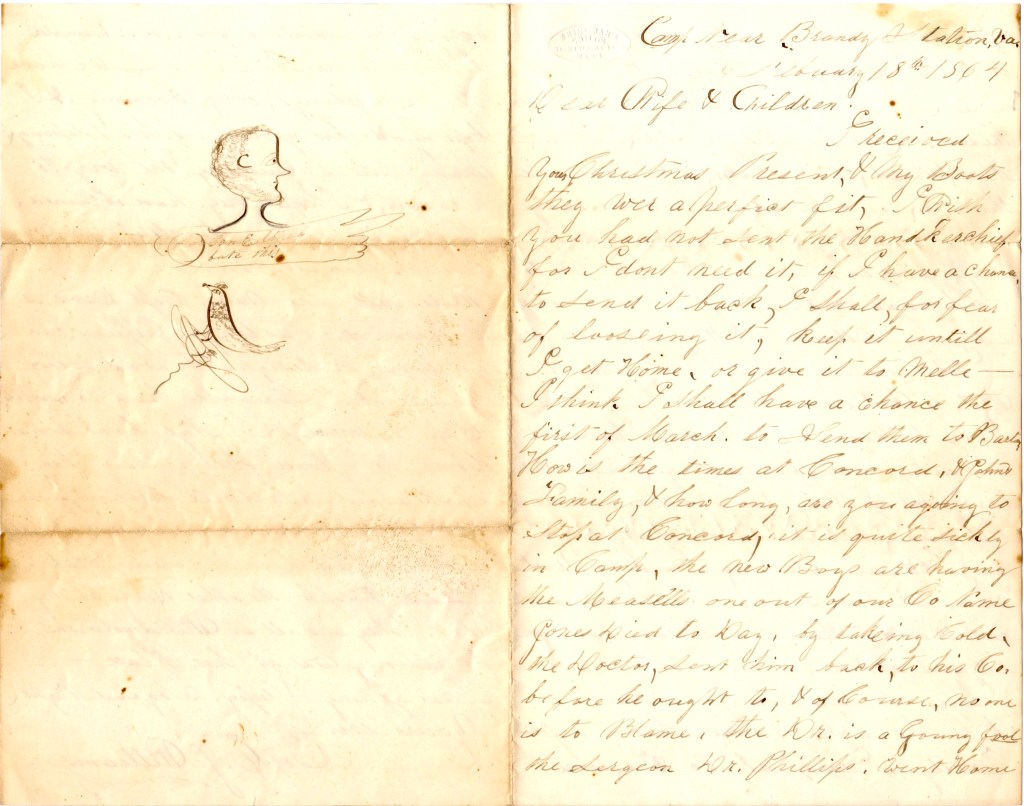 late
Camp Near Brandy Station, Va.
February 18th 1864
Dear Wife & Children.
I received
your Christmas Present, & My Boots
they wer a perfict fit, I Wish
you had not sent the Handkerchief
for I dont need it, if I have a chance
to send it back, I shall, for fear
of looseing it, keep it untill
I get Home, or give it to Melle —
I think I shall have a chance the
first of March. to send them to Barton
How is the times at Concord, & Johns
Family, & how long, are you agoing to
Stop at Concord, it is quite sickly
in Camp, the new Boys are having
the Measells one out of our Co Name
Jones Died to Day, by takeing Cold,
the Doctor, sent him back, to his Co.
before he ought to, & of Course, no one
is to Blame, the Dr. is a Young fool
the Sergeon Dr. Phillips. went Home